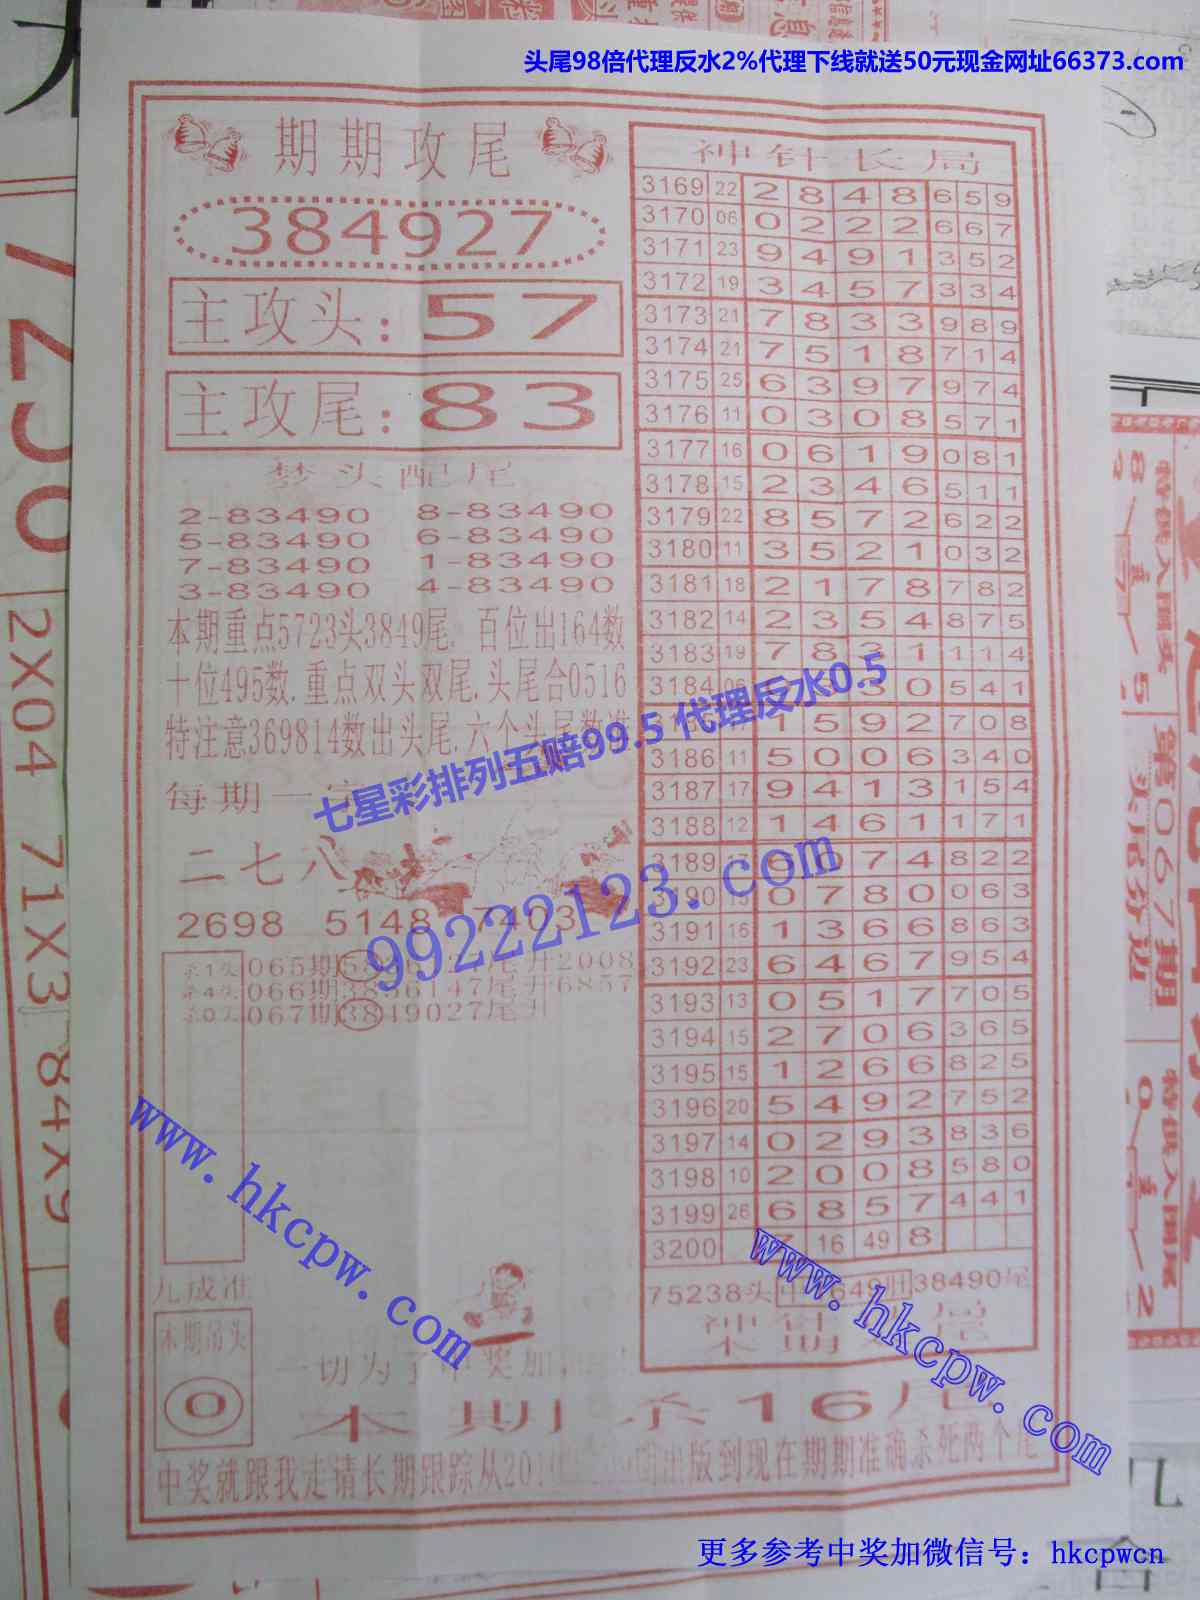 头尾98倍代理反水2%代理下线就送50元现金网址66373.com
期期攻尾
384927
主攻头:57
主攻尾:83
梦头配尾
2-83490 8-83490
5-83490 6-83490
7-83490 1-83490
3-83490 4-83490
本期重点5723头3849尾. 百位出164数
十位495数.重点双头双尾.头尾合0516
特注意369814数出头尾.六个头尾数准
每期一字
二七八
2698 5148 7403
杀1头 065期
杀4头 066期3856147尾开6857
杀0头 067期3849027尾开
九成准
本期吊头
0
神针长局
3169 22 2 8 4 8 6 5 9
3170 06 0 2 2 2 6 6 7
3171 23 9 4 9 1 3 5 2
3172 19 3 4 5 7 3 3 4
3173 21 7 8 3 3 9 8 9
3174 21 7 5 1 8 7 1 4
3175 25 6 3 9 7 9 7 4
3176 11 0 3 0 8 5 7 1
3177 16 0 6 1 9 0 8 1
3178 15 2 3 4 6 5 1 1
3179 22 8 5 7 2 6 2 2
3180 11 3 5 2 1 0 3 2
3181 18 2 1 7 8 7 8 2
3182 14 2 3 5 4 8 7 5
3183 19 7 8 3 1 1 1 4
3184 06 3 0 5 4 1
1 5 9 2 7 0 8
3186 11 5 0 0 6 3 4 0
3187 17 9 4 1 3 1 5 4
3188 12 1 4 6 1 1 7 1
3189 0 7 4 8 2 2
0 7 8 0 0 6 3
3191 16 1 3 6 6 8 6 3
3192 23 6 4 6 7 9 5 4
3193 13 0 5 1 7 7 0 5
3194 15 2 7 0 6 3 6 5
3195 15 1 2 6 6 8 2 5
3196 20 5 4 9 2 7 5 2
3197 14 0 2 9 3 8 3 6
3198 10 2 0 0 8 5 8 0
3199 26 6 8 5 7 4 4 1
3200 7 16 49 8
75238头 38490尾
神针
本期
一切为了中奖加
本期杀16尾
中奖就跟我走请长期跟踪从20 出版到现在期期准确杀死两个尾
七星彩排列五赔99.5 代理反水0.5
99222123.com
www.hkcpw.com
www.hkcpw.com
更多参考中奖加微信号：hkcpwcn
2X04 71X3 84X9
第067期
头尾分边